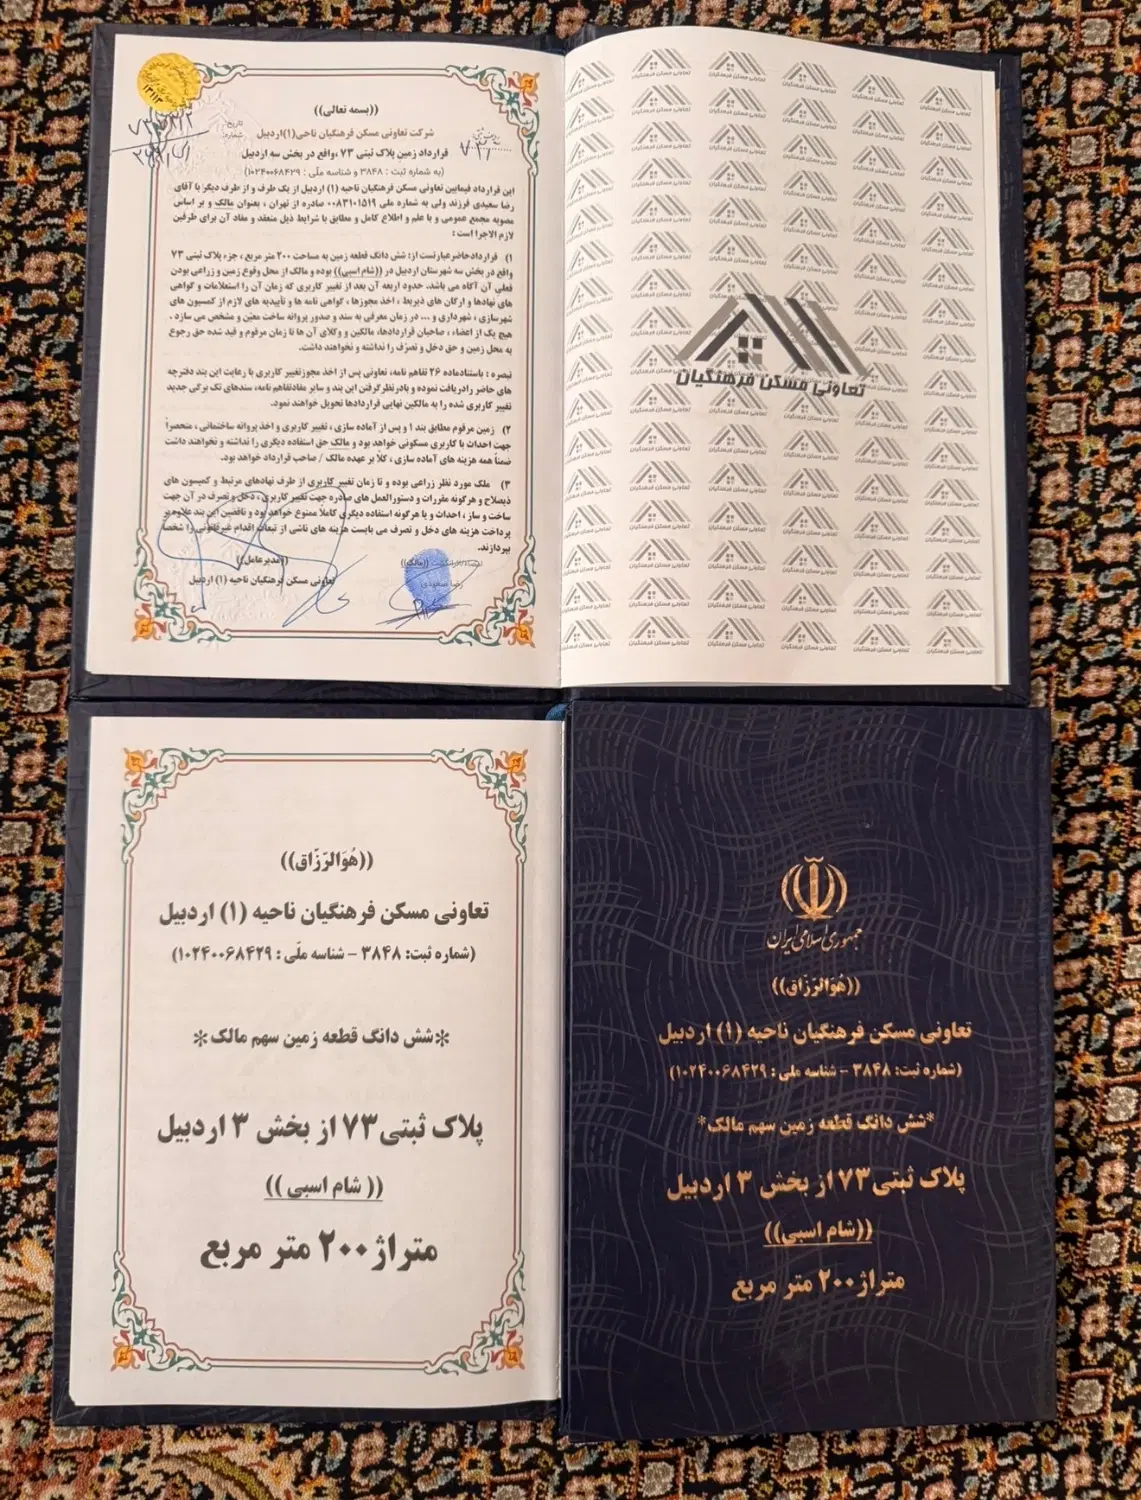 ((بسمه تعالی))
شرکت تعاونی مسکن فرهنگیان ناحی(۱)اردبیل
قرارداد زمین پلاک ثبتی ۷۳ ،واقع در بخش سه اردبیل
(به شماره ثبت : ۳۸۴۸ و شناسه ملّی : ۱۰۲۴۰۰۶۸۴۲۹)
تاریخ:
شماره:
این قرارداد فیمابین تعاونی مسکن فرهنگیان ناحیه (۱) اردبیل از یک طرف و از طرف دیگر با آقای
رضا سعیدی فرزند ولی به شماره ملی ۰۰۸۳۱۰۱۵۱۹ صادره از تهران ، بعنوان مالک و بر اساس
مصوبه مجمع عمومی و با علم و اطلاع کامل و مطابق با شرایط ذیل منعقد و مفاد آن برای طرفین
لازم الاجرا است :
۱) قراردادحاضرعبارتست از: شش دانگ قطعه زمین به مساحت ۲۰۰ متر مربع ، جزء پلاک ثبتی ۷۳
واقع در بخش سه شهرستان اردبیل در ((شام اسبی)) بوده و مالک از محل وقوع زمین و زراعی بودن
فعلی آن آگاه می باشد. حدود اربعه آن بعد از تغییر کاربری که زمان آن را استعلامات و گواهی
های نهادها و ارگان های ذیربط ، اخذ مجوزها ، گواهی نامه ها و تأییدیه های لازم از کمسیون های
شهرسازی ، شهرداری و ... در زمان معرفی به سند و صدور پروانه ساخت معیّن و مشخص می سازد .
هیچ یک از اعضاء ، صاحبان قراردادها، مالکین و وکلای آن ها تا زمان مرقوم و قید شده حق رجوع
به محل زمین و حق دخل و تصرّف را نداشته و نخواهند داشت.
تبصره : باستنادماده ۲۶ تفاهم نامه، تعاونی پس از اخذ مجوزتغییر کاربری با رعایت این بند دفترچه
های حاضر رادریافت نموده و بادرنظرگرفتن این بند و سایر مفادتفاهم نامه، سندهای تک برگی جدید
تغییر کاربری شده را به مالکین نهایی قراردادها تحویل خواهند نمود.
۲) زمین مرقوم مطابق بند ۱ و پس از آماده سازی ، تغییر کاربری و اخذ پروانه ساختمانی ، منحصراً
جهت احداث با کاربری مسکونی خواهد بود و مالک حق استفاده دیگری را نداشته و نخواهند داشت
ضمناً همه هزینه های آماده سازی ، کلاً بر عهده مالک / صاحب قرارداد خواهد بود.
۳) ملک مورد نظر زراعی بوده و تا زمان تغییر کاربری از طرف نهادهای مرتبط و کمیسون های
ذیصلاح و هرگونه مقررات و دستورالعمل های صادره جهت تغییر کاربری ، دخل و تصرف در آن جهت
ساخت و ساز ، احداث و یا هرگونه استفاده دیگری کاملا ممنوع خواهد بود و ناقضین این بند علاوه بر
پرداخت هزینه های دخل و تصرف می بایست هزینه های ناشی از تبعات اقدام غیرقانونی را شخصا
بپردازند.
((مالک))
رضا سعیدی
((مدیرعامل))
تعاونی مسکن فرهنگیان ناحیه (۱) اردبیل
تعاونی مسکن فرهنگیان
((هُوَالرَزّاق))
تعاونی مسکن فرهنگیان ناحیه (۱) اردبیل
(شماره ثبت: ۳۸۴۸ – شناسه ملّی : ۱۰۲۴۰۰۶۸۴۲۹)
*شش دانگ قطعه زمین سهم مالک*
پلاک ثبتی۷۳ از بخش ۳ اردبیل
(( شام اسبی ))
متراژ۲۰۰ متر مربع
جمهوری اسلامی ایران
((هُوَالرَزّاق))
تعاونی مسکن فرهنگیان ناحیه (۱) اردبیل
(شماره ثبت: ۳۸۴۸ – شناسه ملی : ۱۰۲۴۰۰۶۸۴۲۹)
*شش دانگ قطعه زمین سهم مالک*
پلاک ثبتی۷۳ از بخش ۳ اردبیل
((شام اسبی))
متراژ۲۰۰ متر مربع